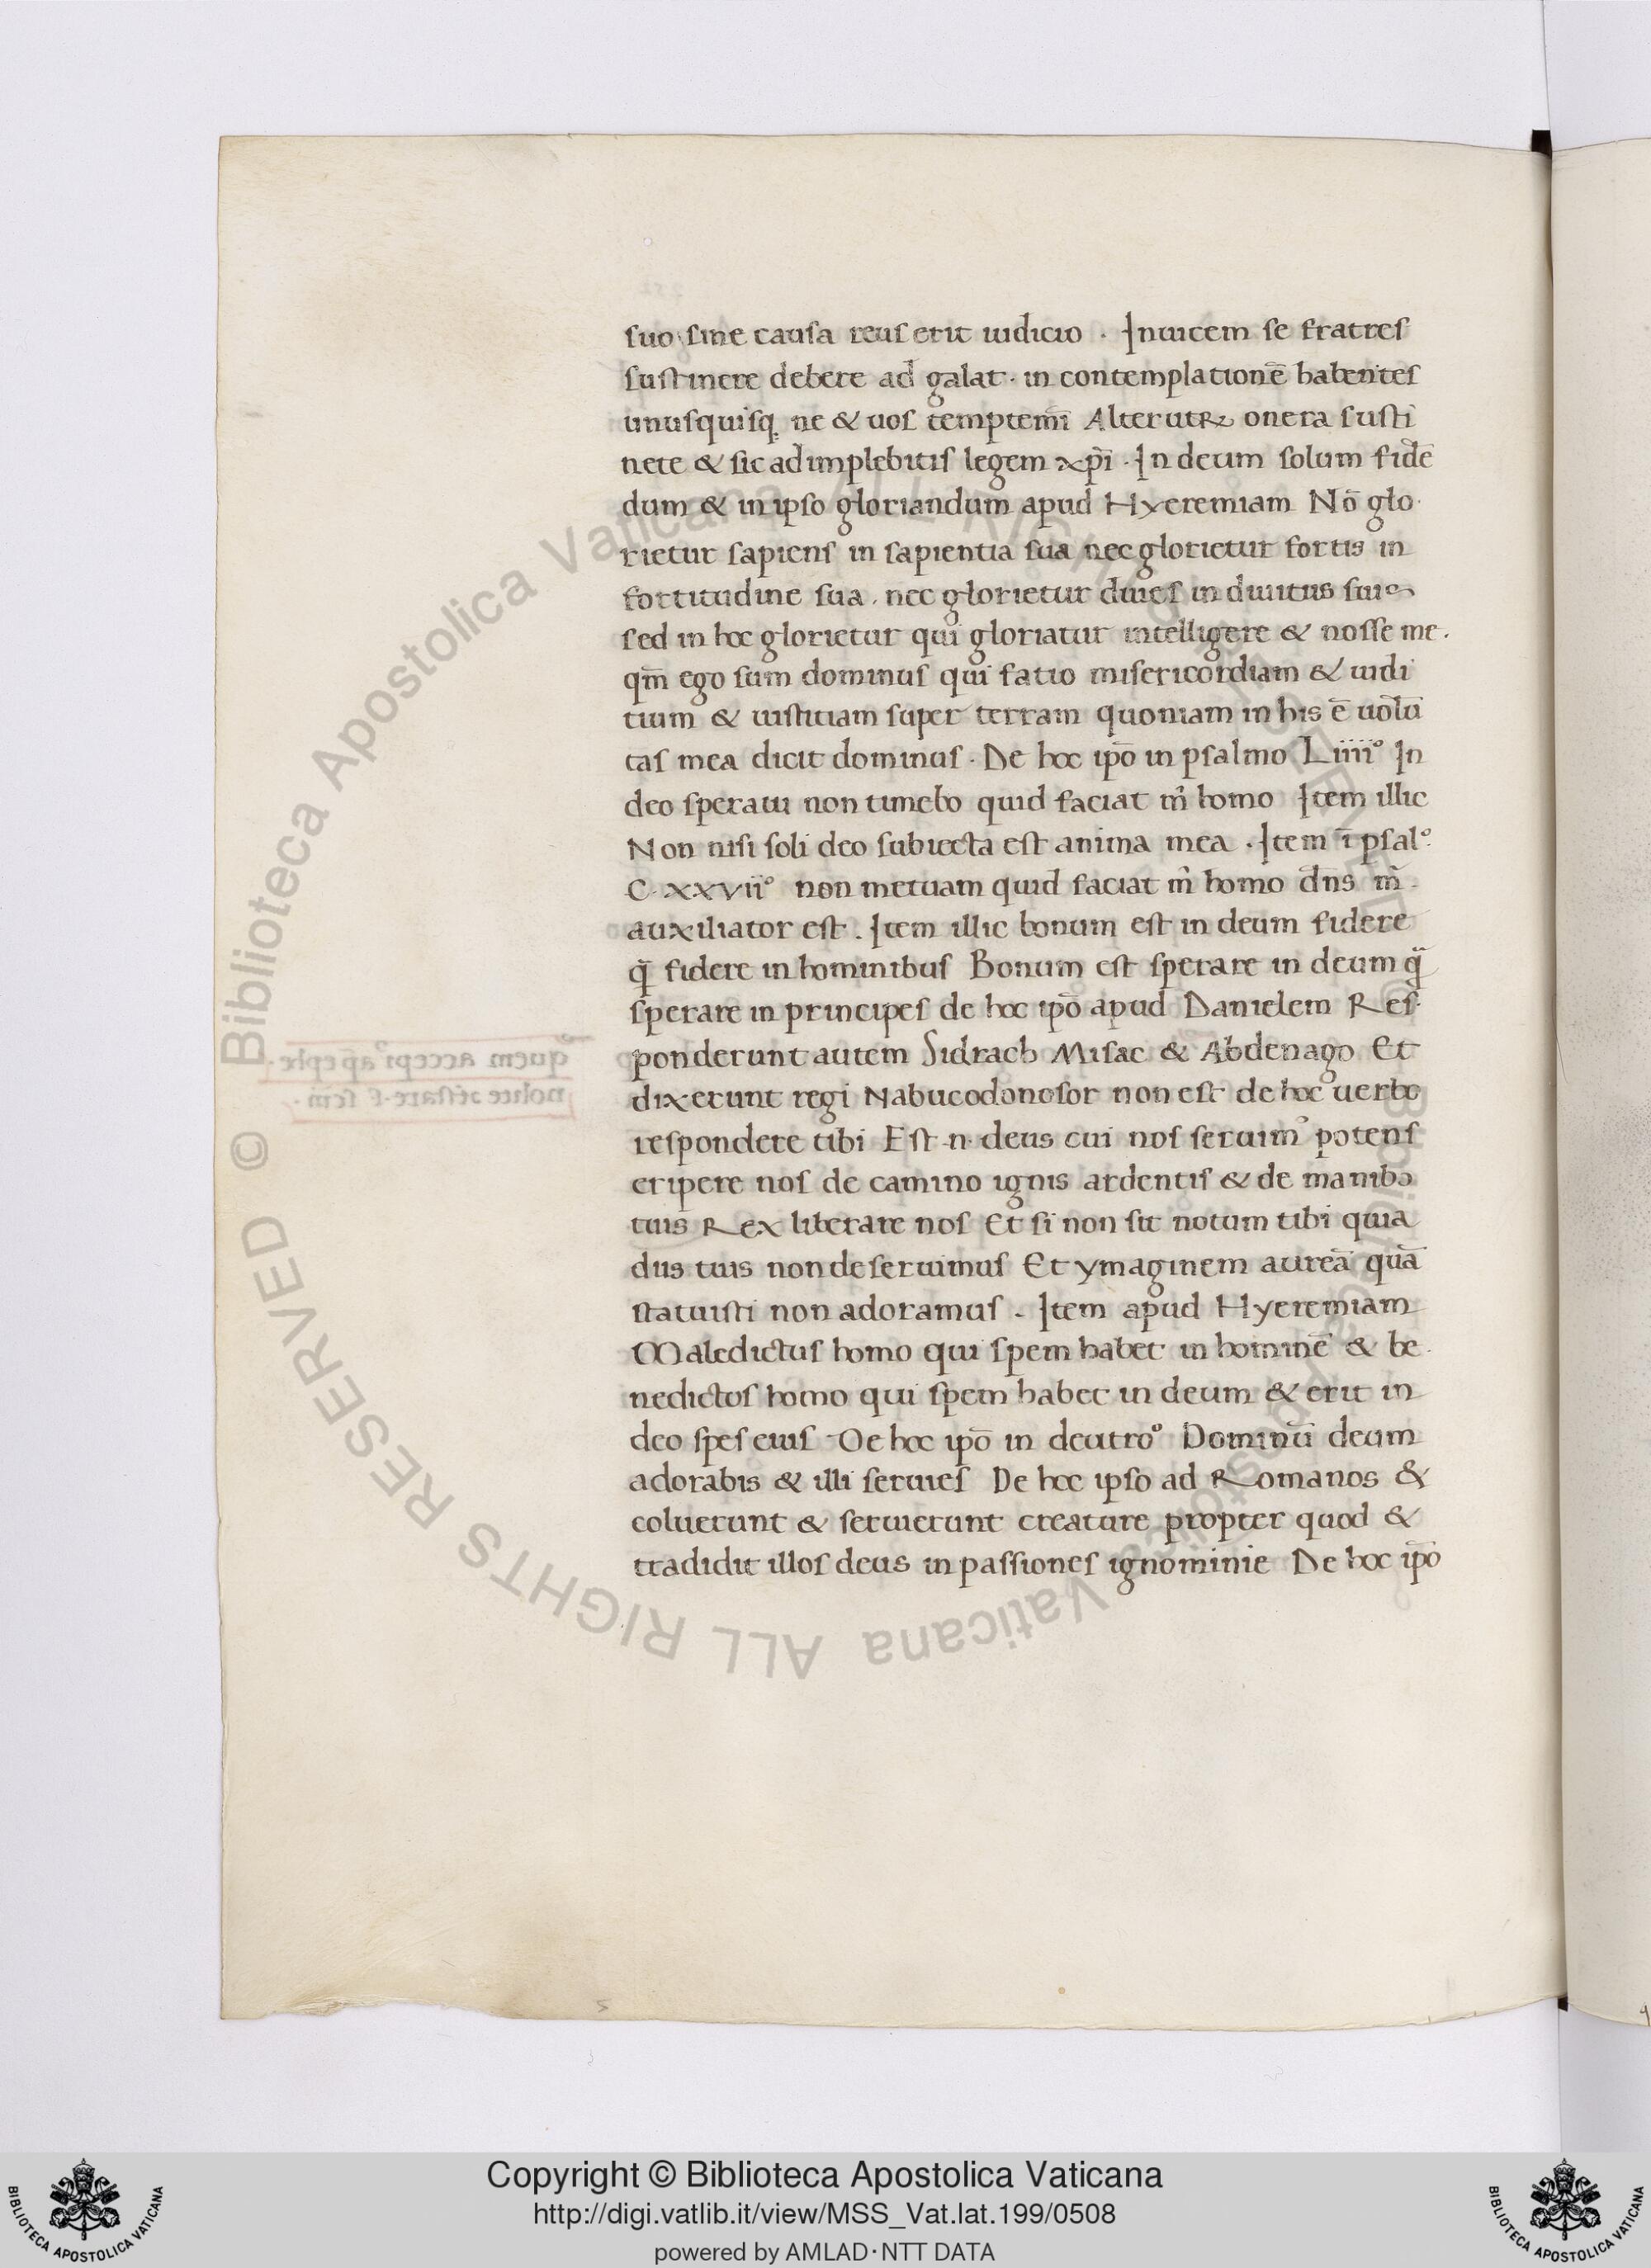 suo sine causa reus erit iudicio . Inuicem se fratres
sustinere debere ad galat. in contemplationē habentes
unusquisq; ne & uos temptemī Alterutrꝝ onera susti
nete & sic adimplebitis legem xp̄i . In deum solum fidē
dum & in ipso gloriandum apud Hyeremiam Nō glo
rietur sapiens in sapientia sua nec glorietur fortis in
fortitudine sua . nec glorietur diues in diuitiis suis
sed in hoc glorietur qui gloriatur intelligere & nosse me .
qm̄ ego sum dominus qui fatio misericordiam & iudi
tium & iustitiam super terram quoniam in his ē uolū
tas mea dicit dominus . De hoc ip̄o in psalmo Liiii° In
deo speraui non timebo quid faciat m̄ homo Item illic
Non nisi soli deo subiecta est anima mea . Item ī psal°
C . xxvii° non metuam quid faciat m̄ homo dn̄s m̄ .
auxiliator est . Item illic bonum est in deum fidere
q̄ fidere in hominibus Bonum est sperare in deum q̄
sperare in principes de hoc ip̄o apud Danielem Res
ponderunt autem Sidrach Misac & Abdenago Et
dixerunt regi Nabucodonosor non est de hoc uerbo
respondere tibi Est .n. deus cui nos seruimꝰ potens
eripere nos de camino ignis ardentis & de manibꝰ
tuis Rex liberare nos Et si non sit notum tibi quia
diis tuis non deseruimus Et ymaginem aureā quā
statuisti non adoramus . Item apud Hyeremiam
Maledictus homo qui spem habet in hominē & be
nedictos homo qui spem habet in deum & erit in
deo spes eius De hoc ip̄o in deutro° Dominū deum
adorabis & illi seruies De hoc ipso ad Romanos &
coluerunt & seruierunt creature propter quod &
tradidit illos deus in passiones ignominie De hoc ip̄o
© Biblioteca Apostolica Vaticana ALL RIGHTS RESERVED
© Biblioteca Apostolica Vaticana ALL RIGHTS RESERVED
Copyright © Biblioteca Apostolica Vaticana
http://digi.vatlib.it/view/MSS_Vat.lat.199/0508
powered by AMLAD·NTT DATA
BIBLIOTECA APOSTOLICA VATICANA
BIBLIOTECA APOSTOLICA VATICANA